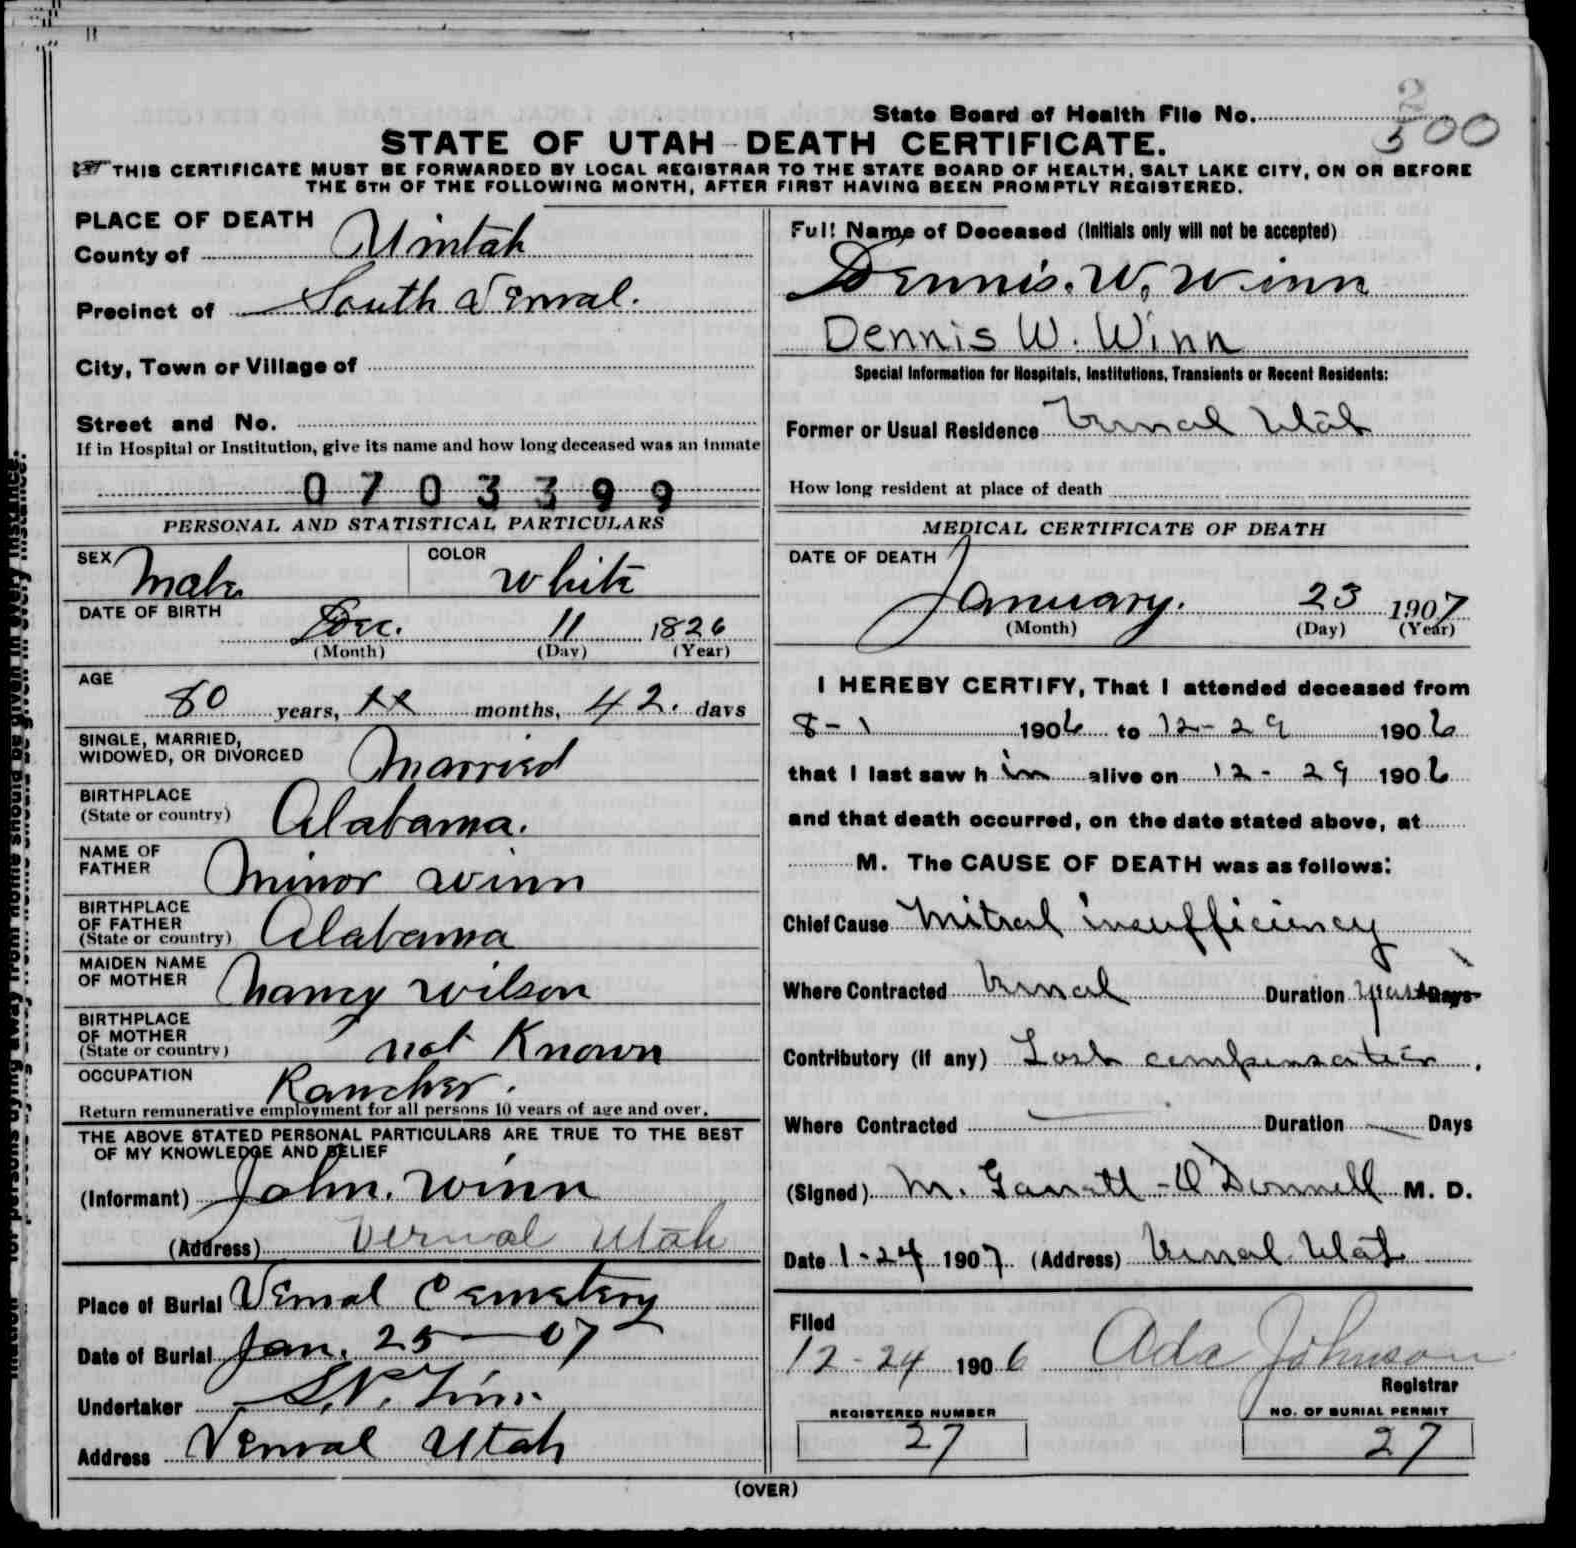 State Board of Health File No. 2
500
STATE OF UTAH-DEATH CERTIFICATE.
THIS CERTIFICATE MUST BE FORWARDED BY LOCAL REGISTRAR TO THE STATE BOARD OF HEALTH, SALT LAKE CITY, ON OR BEFORE
THE 5TH OF THE FOLLOWING MONTH, AFTER FIRST HAVING BEEN PROMPTLY REGISTERED.
PLACE OF DEATH
County of Uintah
Precinct of South Vernal.
City, Town or Village of
Street and No.
If in Hospital or Institution, give its name and how long deceased was an inmate
0703399
PERSONAL AND STATISTICAL PARTICULARS
SEX Male COLOR White
DATE OF BIRTH
Dec. 11 1826
(Month) (Day) (Year)
AGE
80 years, months, 42. days
SINGLE, MARRIED,
WIDOWED, OR DIVORCED Married
BIRTHPLACE
(State or country) Alabama.
NAME OF
FATHER Minor Winn
BIRTHPLACE
OF FATHER
(State or country) Alabama
MAIDEN NAME
OF MOTHER Nancy Wilson
BIRTHPLACE
OF MOTHER
(State or country) not Known
OCCUPATION Rancher.
Return remunerative employment for all persons 10 years of age and over.
THE ABOVE STATED PERSONAL PARTICULARS ARE TRUE TO THE BEST
OF MY KNOWLEDGE AND BELIEF
(Informant) John. Winn
(Address) Vernal Utah
Place of Burial Vernal Cemetery
Date of Burial Jan. 25-07
Undertaker S.P.
Address Vernal Utah
Full Name of Deceased (Initials only will not be accepted)
Dennis. W. Winn
Dennis W. Winn
Special Information for Hospitals, Institutions, Transients or Recent Residents:
Former or Usual Residence Vernal Utah
How long resident at place of death
MEDICAL CERTIFICATE OF DEATH
DATE OF DEATH
January. 23 1907
(Month) (Day) (Year)
I HEREBY CERTIFY, That I attended deceased from
8-1 1906 to 12-29 1906
that I last saw him alive on 12-29 1906
and that death occurred, on the date stated above, at
M. The CAUSE OF DEATH was as follows:
Chief Cause Mitral insufficiency
Where Contracted Vernal Duration years Days
Contributory (if any) Lost compensation.
Where Contracted Duration Days
(Signed) M. Garrett-O'Donnell M. D.
Date 1-24 1907 (Address) Vernal Utah
Filed
12-24 1906 Ada Johnson
Registrar
REGISTERED NUMBER
27
NO. OF BURIAL PERMIT
27
(OVER)